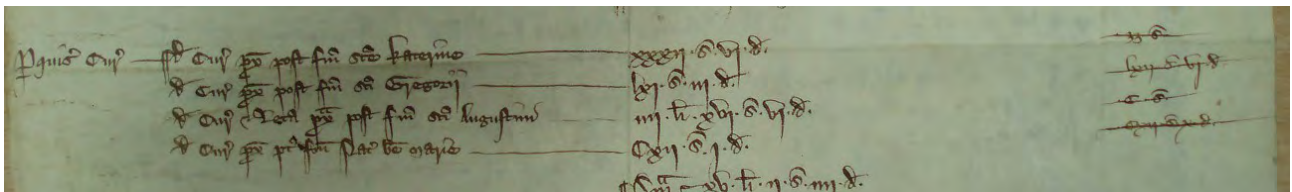 Pquis' Cur' D' Cur' px' post fm̄ sc̄e Katerine xxxii · s̄ · vi · d̄ ·
d' Cur' px' post fm̄ sc̄i Gregorii lxi · s̄ · iii · d̄ · lxii · s̄ · vi · d̄ ·
d' Cur' & Leta px' post fm̄ sc̄i Augustini iiii · li · xvi · s̄ · vi · d̄ · C · s̄ ·
d' Cur' px' pt' fm̄ Nat' be Marie Cxii · s̄ · i · d̄ ·
Sma xv · li · ii · s̄ · iiii · d̄ ·